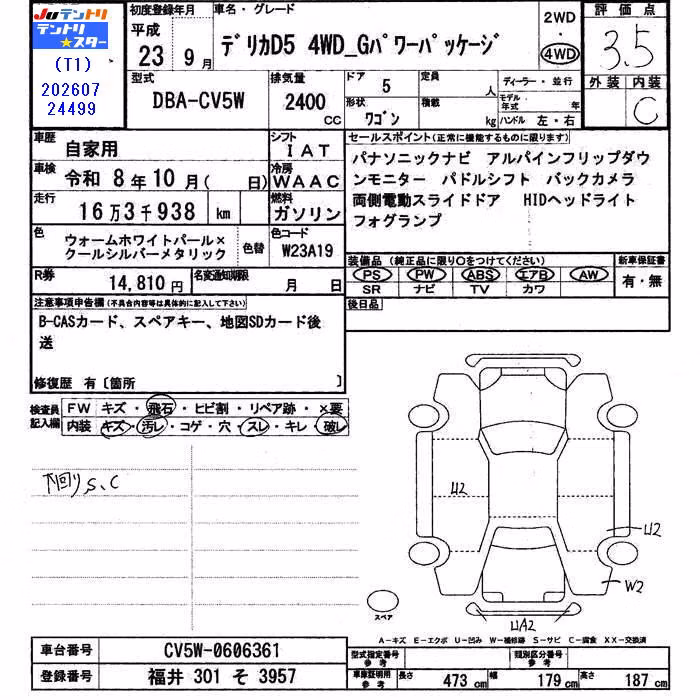 Juテントリ
テントリ★スター
(T1)
202607
24499
初度登録年月
平成
23 9月
車名・グレード
デリカD5 4WD_Gパワーパッケージ
2WD
・
4WD
評価点
3.5
外装 内装
C
型式
DBA-CV5W
排気量
2400
CC
ドア 5
形状 ワゴン
定員 人
積載 kg
ディーラー・並行
モデル年式 年
ハンドル 左・右
車歴 自家用
シフト IAT
車検 令和 8年10月( 日)
冷房 WAAC
走行 16万3千938 km
燃料 ガソリン
色 ウォームホワイトパール×
クールシルバーメタリック
色替
色コード W23A19
R券 14,810円
名変通知期限 月 日
セールスポイント(正常に機能するものに限ります)
パナソニックナビ アルパインフリップダウ
ンモニター パドルシフト バックカメラ
両側電動スライドドア HIDヘッドライト
フォグランプ
装備品(純正品に限り〇をつけてください)
新車保証書
PS PW ABS エアB AW
SR ナビ TV カワ
有・無
後日品
注意事項申告欄(不具合内容等は具体的に記入して下さい)
B-CASカード、スペアキー、地図SDカード後
送
修復歴 有〔箇所 〕
検査員記入欄
FW キズ・飛石・ヒビ割・リペア跡・×要
内装 キズ・汚レ・コゲ・穴・スレ・キレ・破レ
下回りS、C
U2
U2
W2
UA2
スペア
A-キズ E-エクボ U-凹み W-補修跡 S-サビ C-腐食 XX-交換済
車台番号 CV5W-0606361
登録番号 福井 301 そ 3957
型式指定番号 参考
類別区分番号 参考
車庫証明用 参考
長さ 473 cm
幅 179 cm
高さ 187 cm